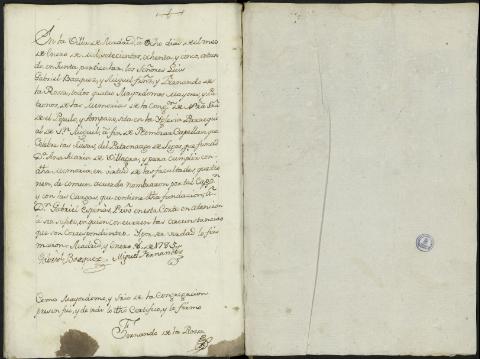 En la Villa de Madrid, a Ocho dias del mes
de Enero de mil setecientos, ochenta y cinco, estan
do en Junta particular, los Señores Luis
Gabriel Bosquez, y Miguel Fernz, y Fernando de
la Rossa, todos quatro Mayordomos Mayores, y Pa
tronos de las Memorias de la Congon de Nra Sra
del Populo, y Amparo, sita en la Iglesia Parroqui
al de Sn Miguel, a fin de Nombrar Capellan que
Celebre las Misas, del Patronazgo de Legos, que fundó
Da Ana Maria de Villegra, y para cumplir con
dha memoria, en virtud de las facultades, que tie
nen, de comun acuerdo nombraron por tal Cappn
y con las Cargas, que contiene dha fundacion, a
Dn Gabriel Espinás, Pbro en esta Corte en atencion
a ser sugeto, en quien concurren las circunstancias
que son correspondientes. Y por ser verdad lo fir
maron. Madrid, y Enero 8 de 1785
Gabriel Bosquez Miguel Fernandez
Como Mayordomo, y Srio de la Congregacion
presente fui, y de todo lo dho Certifico, y lo firmo
Fernando de la Rossa